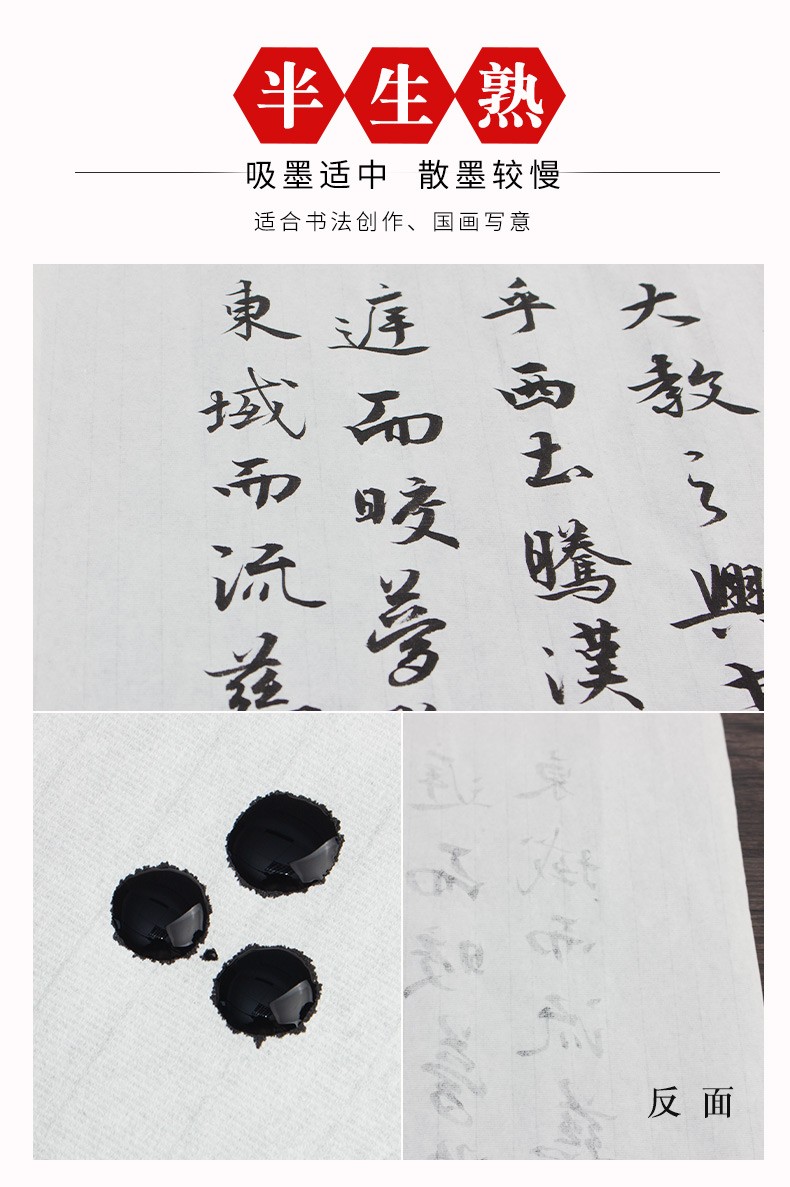 半生熟
吸墨适中 散墨较慢
适合书法创作、国画写意
大教之興
乎西土騰漢
庭而晈夢
東域而流慈
反面